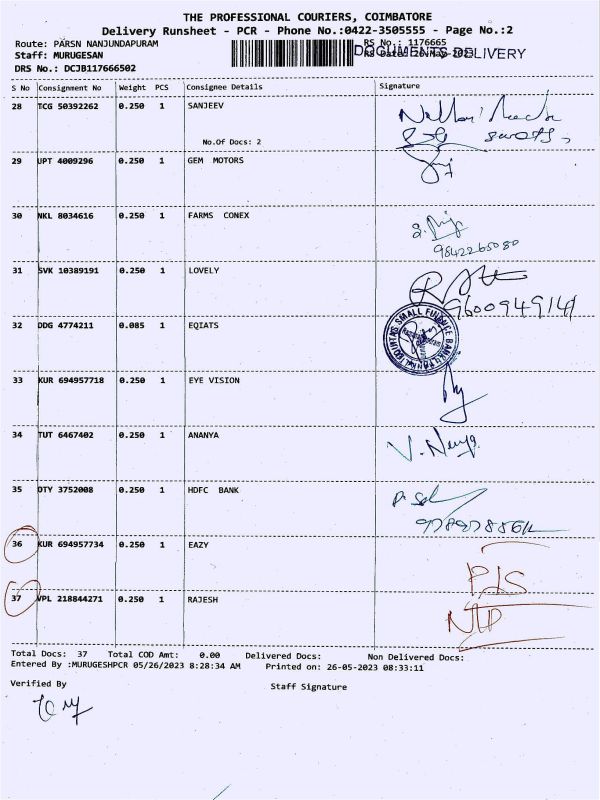 THE PROFESSIONAL COURIERS, COIMBATORE
Delivery Runsheet - PCR - Phone No.:0422-3505555 - Page No.:2
Route: PARSN NANJUNDAPURAM
RS No.: 1176665
Staff: MURUGESAN
DOCUMENTS DELIVERY
DRS No.: DCJB117666502
S No Consignment No Weight PCS Consignee Details Signature
28 TCG 50392262 0.250 1 SANJEEV
No.Of Docs: 2
29 UPT 4009296 0.250 1 GEM MOTORS
30 NKL 8034616 0.250 1 FARMS CONEX
9842265080
31 SVK 10389191 0.250 1 LOVELY
9600949141
32 DDG 4774211 0.085 1 EQIATS
33 KUR 694957718 0.250 1 EYE VISION
34 TUT 6467402 0.250 1 ANANYA
35 OTY 3752008 0.250 1 HDFC BANK
36 KUR 694957734 0.250 1 EAZY
37 VPL 218844271 0.250 1 RAJESH
Total Docs: 37 Total COD Amt: 0.00 Delivered Docs: Non Delivered Docs:
Entered By :MURUGESHPCR 05/26/2023 8:28:34 AM Printed on: 26-05-2023 08:33:11
Verified By
Staff Signature